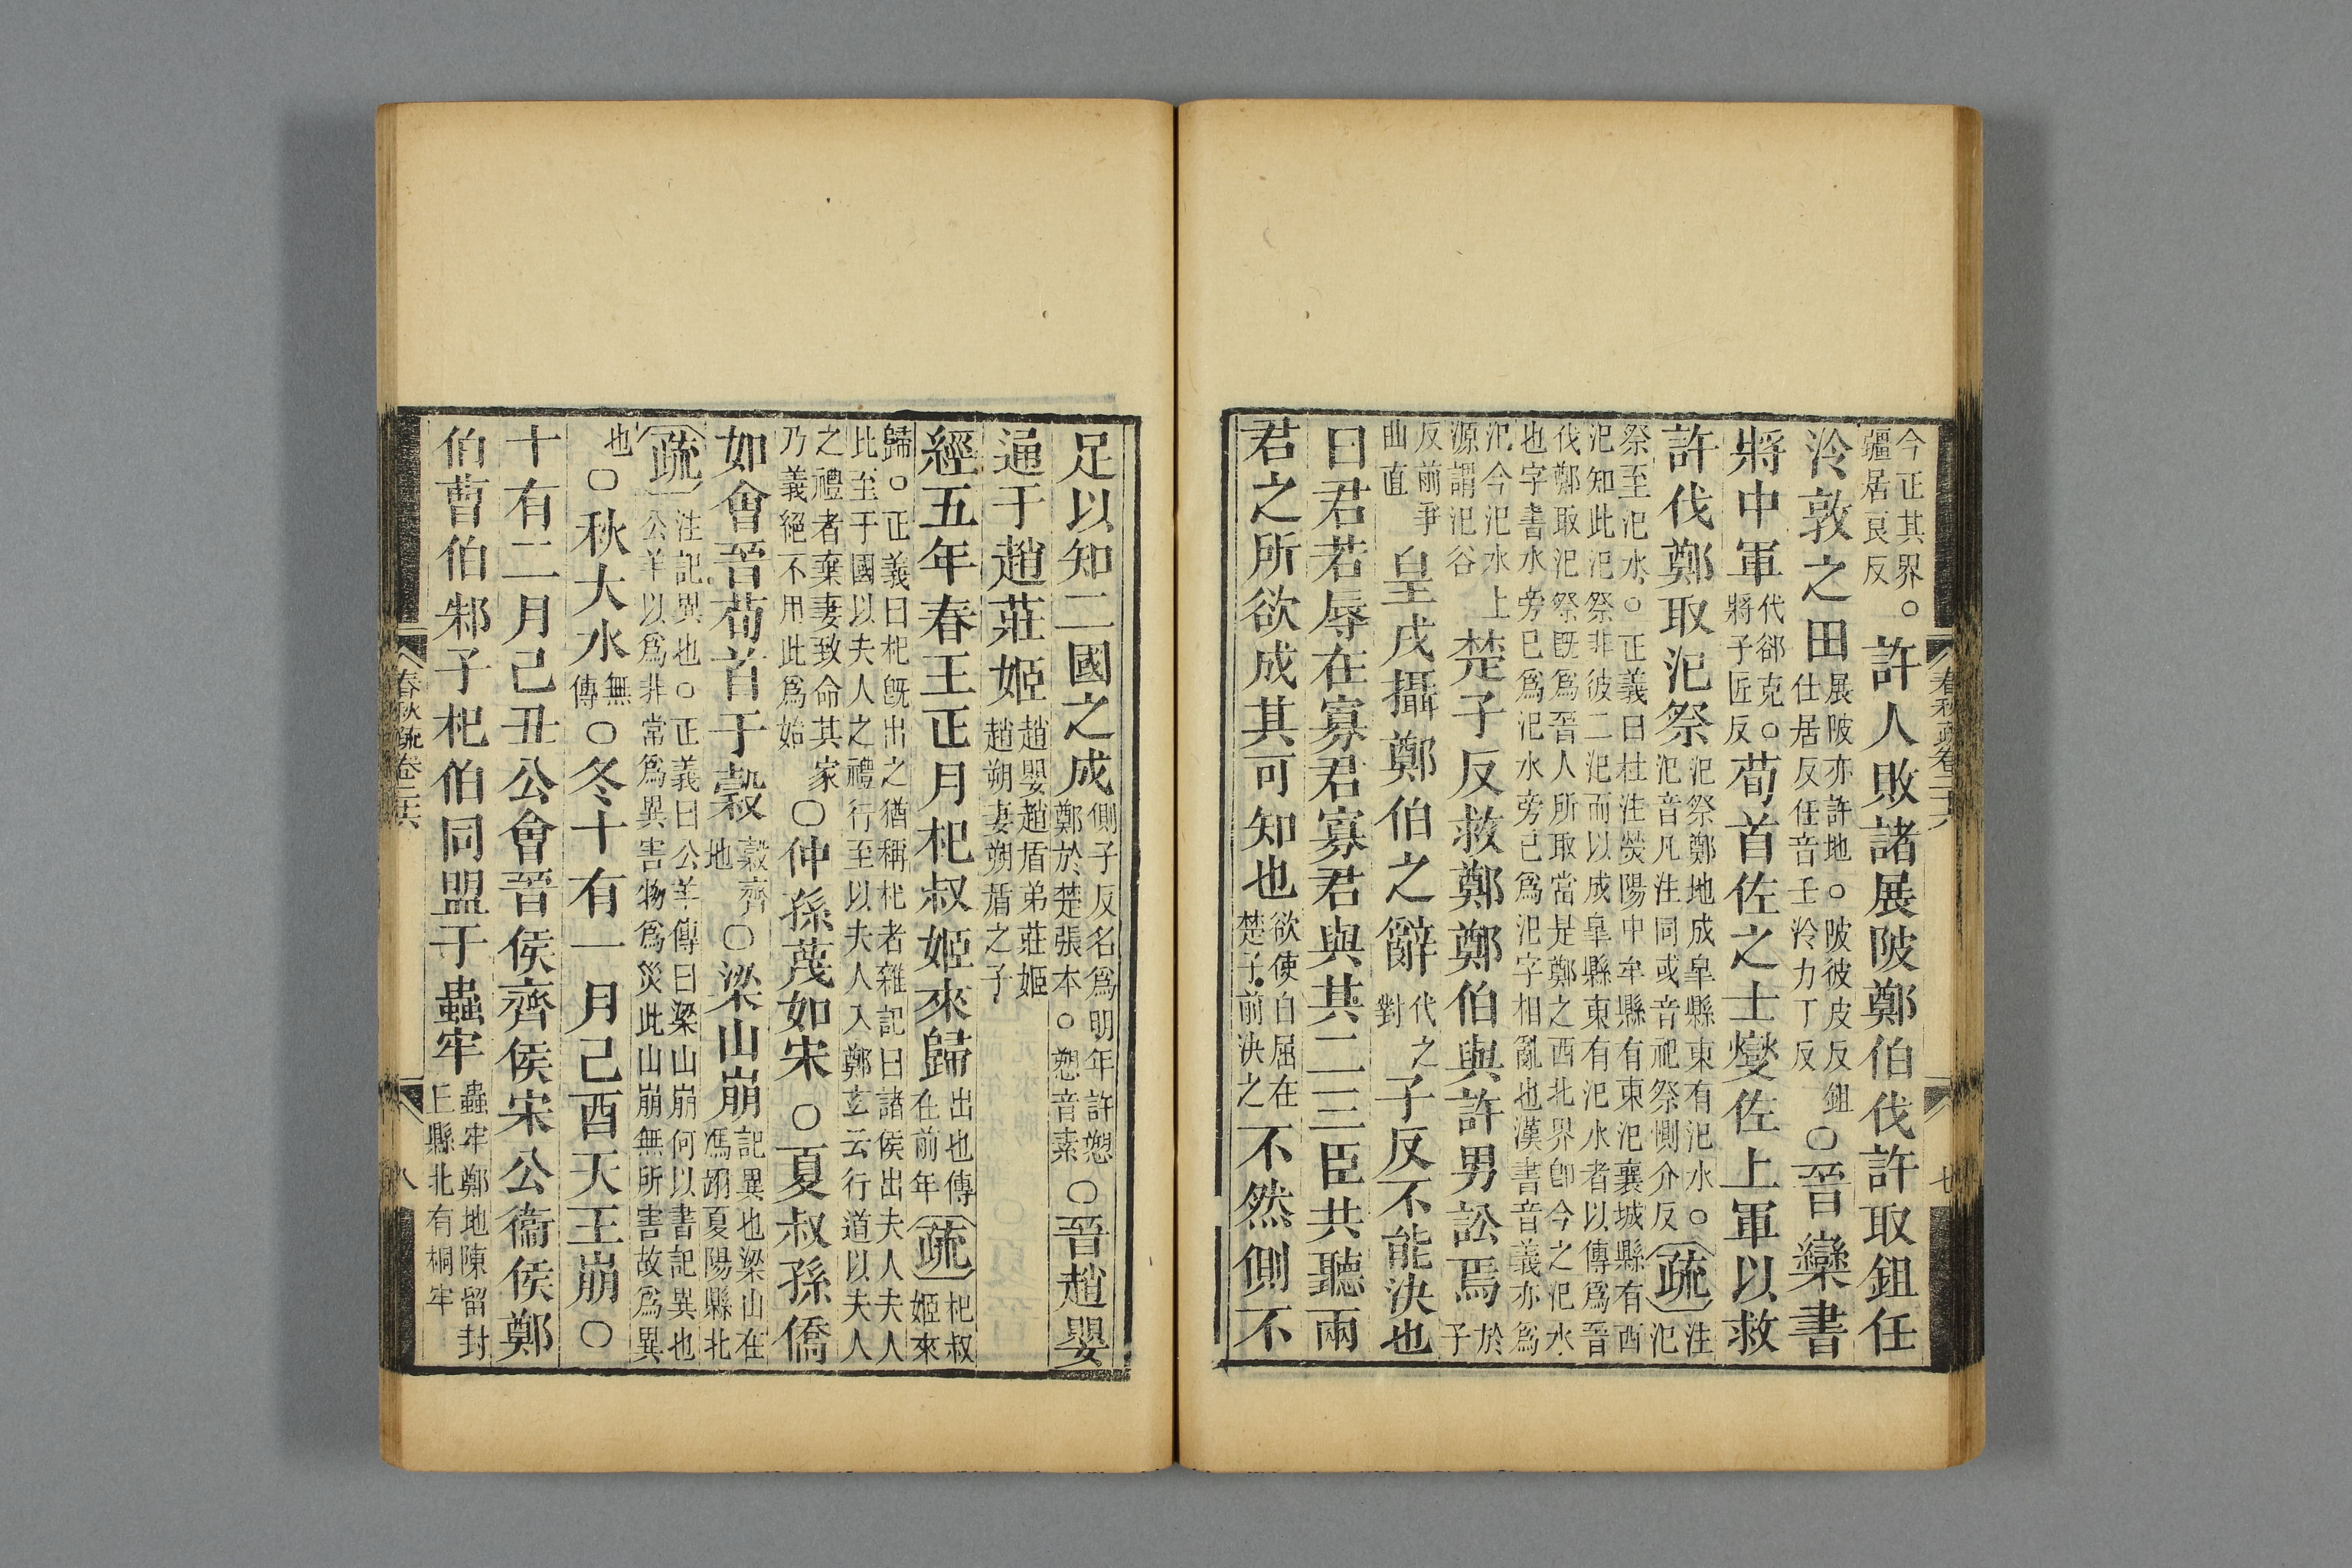 今正其界○
疆居良反
許人敗諸展陂鄭伯伐許取鉏任
泠敦之田
展陂亦許地○陂彼皮反鉏
仕居反任音壬泠力丁反
○晉欒書
將中軍
代郤克○
將子匠反
荀首佐之士燮佐上軍以救
許伐鄭取汜祭
汜祭鄭地成皐縣東有汜水○
汜音凡注同或音祀祭惻介反
疏
注
汜
祭至汜水○正義曰杜注熒陽中牟縣有東汜襄城縣有西
汜知此汜祭非彼二汜而以成皐縣東有汜水者以傳爲晉
伐鄭取汜祭旣爲晉人所取當是鄭之西北界卽今之汜水
也字書水旁巳爲汜水旁㔾爲氾字相亂也漢書音義亦爲
汜今汜水上
源謂汜谷
楚子反救鄭鄭伯與許男訟焉
於
子
反前爭
曲直
皇戌攝鄭伯之辭
代之
對
子反不能決也
曰君若辱在寡君寡君與其二三臣共聽兩
君之所欲成其可知也
欲使自屈在
楚子前決之
不然側不
足以知二國之成
側子反名爲明年許愬
鄭於楚張本○愬音素
○晉趙嬰
通于趙莊姬
趙嬰趙盾弟莊姬
趙朔妻朔盾之子
經五年春王正月杞叔姬來歸
出也傳
在前年
疏
杞叔
姬來
歸○正義曰杞旣出之猶稱杞者雜記曰諸侯出夫人夫人
比至于國以夫人之禮行至以夫人入鄭玄云行道以夫人
之禮者棄妻致命其家
乃義絕不用此爲始
○仲孫蔑如宋○夏叔孫僑
如會晉荀首于穀
穀齊
地
○梁山崩
記異也梁山在
馮翊夏陽縣北
疏
注記異也○正義曰公羊傳曰梁山崩何以書記異也
公羊以爲非常爲異害物爲災此山崩無所害故爲異
也
○秋大水
無
傳
○冬十有一月己酉天王崩○
十有二月己丑公會晉侯齊侯宋公衞侯鄭
伯曹伯邾子杞伯同盟于蟲牢
蟲牢鄭地陳留封
丘縣北有桐牢
春秋疏卷二十六
七
春秋疏卷二十六
八